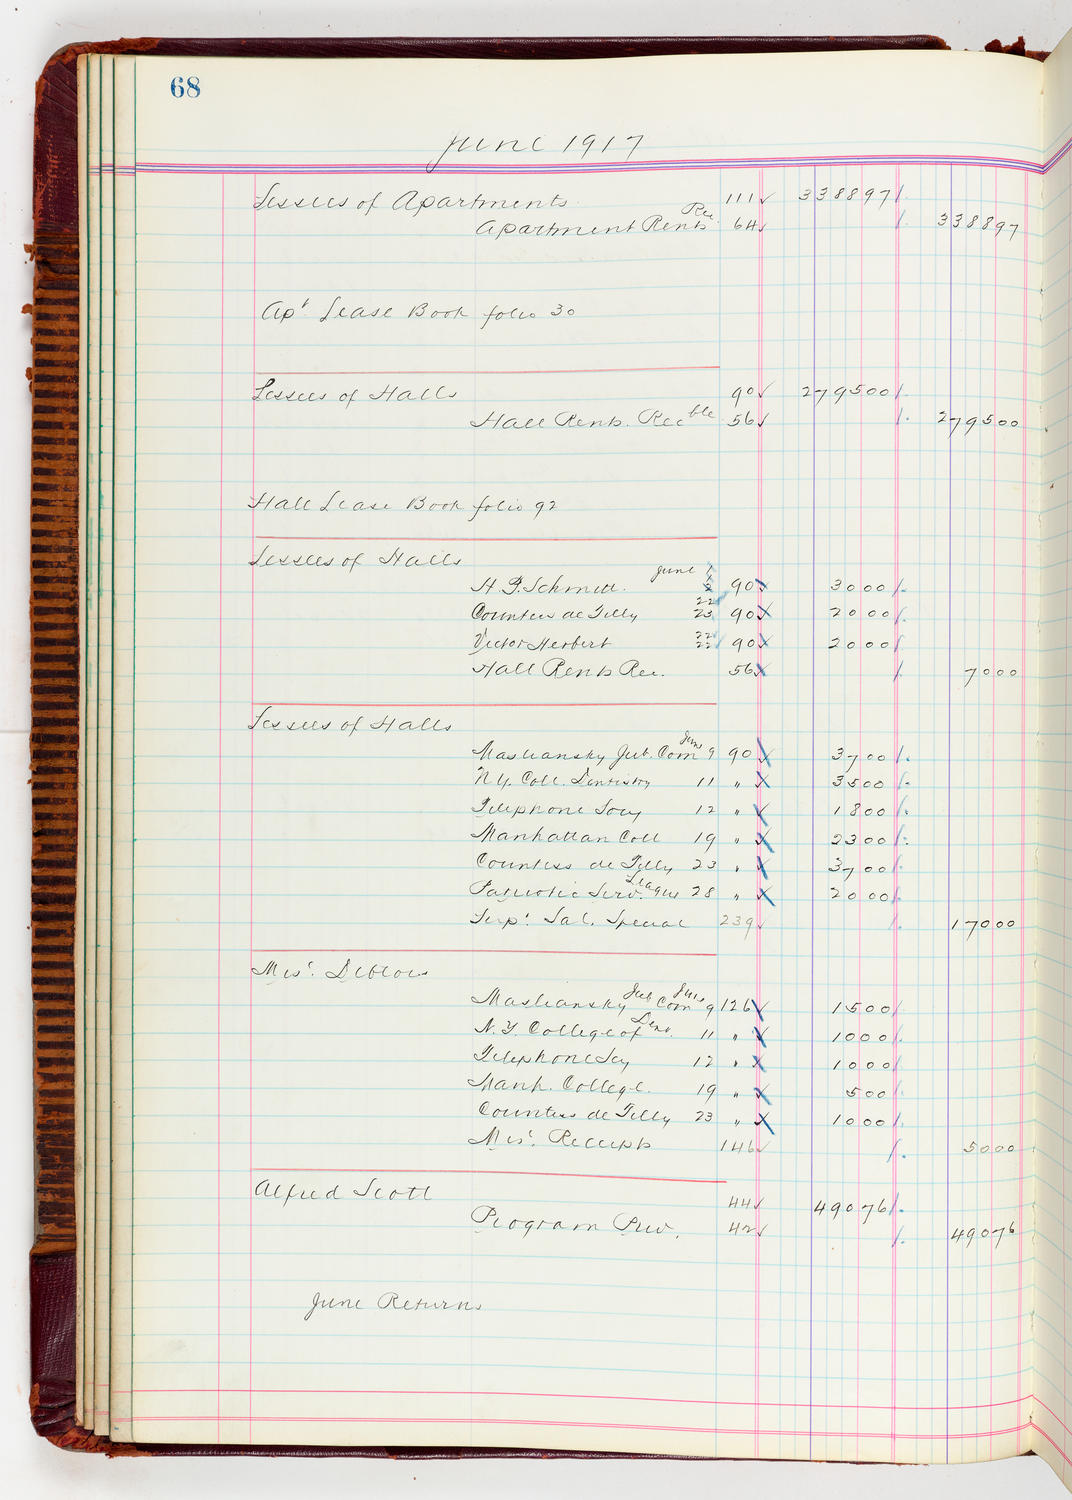 68
June 1917
Lessees of Apartments 111 ✓ 338897
Apartment Rents Rec. 64 ✓ 338897
Apt Lease Book folio 30
Lessees of Halls 90 ✓ 279500
Hall Rents Recble 56 ✓ 279500
Hall Lease Book folio 92
Lessees of Halls
H. F. Schmitt. June 90 3000
Countess de Tilly 22 23 90 2000
Victor Herbert 22 22 90 2000
Hall Rents Rec. 56 7000
Lessees of Halls
Masliansky Jub. Com June 9 90 3700
N.Y. Coll. Dentistry 11 " 3500
Telephone Socy 12 " 1800
Manhattan Coll 19 " 2300
Countess de Tilly 23 " 3700
Patriotic Serv. League 28 " 2000
Supt. Sal. Special 239 17000
Misc. Debtors
Masliansky Jub Com June 9 126 1500
N.Y. College of Den. 11 " 1000
Telephone Scy 12 " 1000
Manh. College. 19 " 500
Countess de Tilly 23 " 1000
Misc. Receipts 146 ✓ 5000
Alfred Scott 44 ✓ 49076
Program Priv. 42 ✓ 49076
June Returns